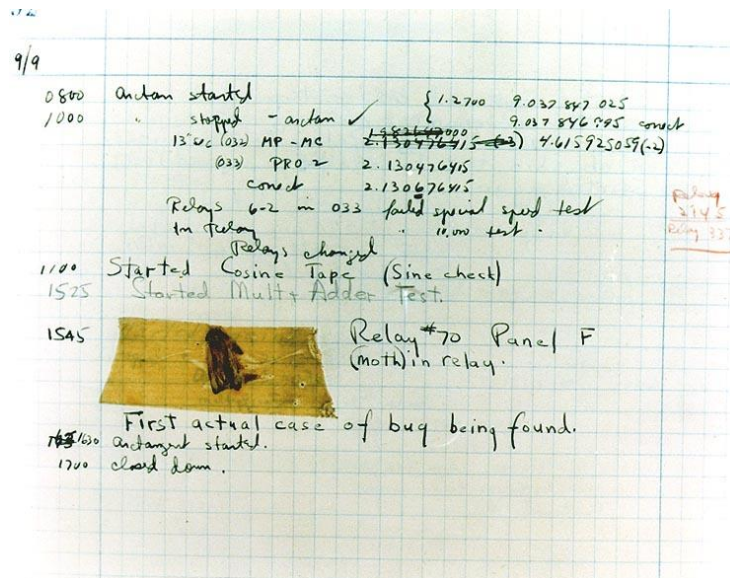 9/9
0800 arctan started { 1.2700 9.037 847 025
1000 " stopped - arctan ✓ 9.037 846 995 correct
13"uc (032) MP - MC 2.130476415 (-3) 4.615925059(-2)
(033) PRO 2 2.130476415
correct 2.130676415
Relays 6-2 in 033 failed special speed test
In Relay " 10,000 test .
Relays changed
Relay
Relay 337
1100 Started Cosine Tape (Sine check)
1525 Started Mult + Adder Test.
1545 Relay #70 Panel F
(moth) in relay.
First actual case of bug being found.
1630 arctangent started.
1700 closed down.